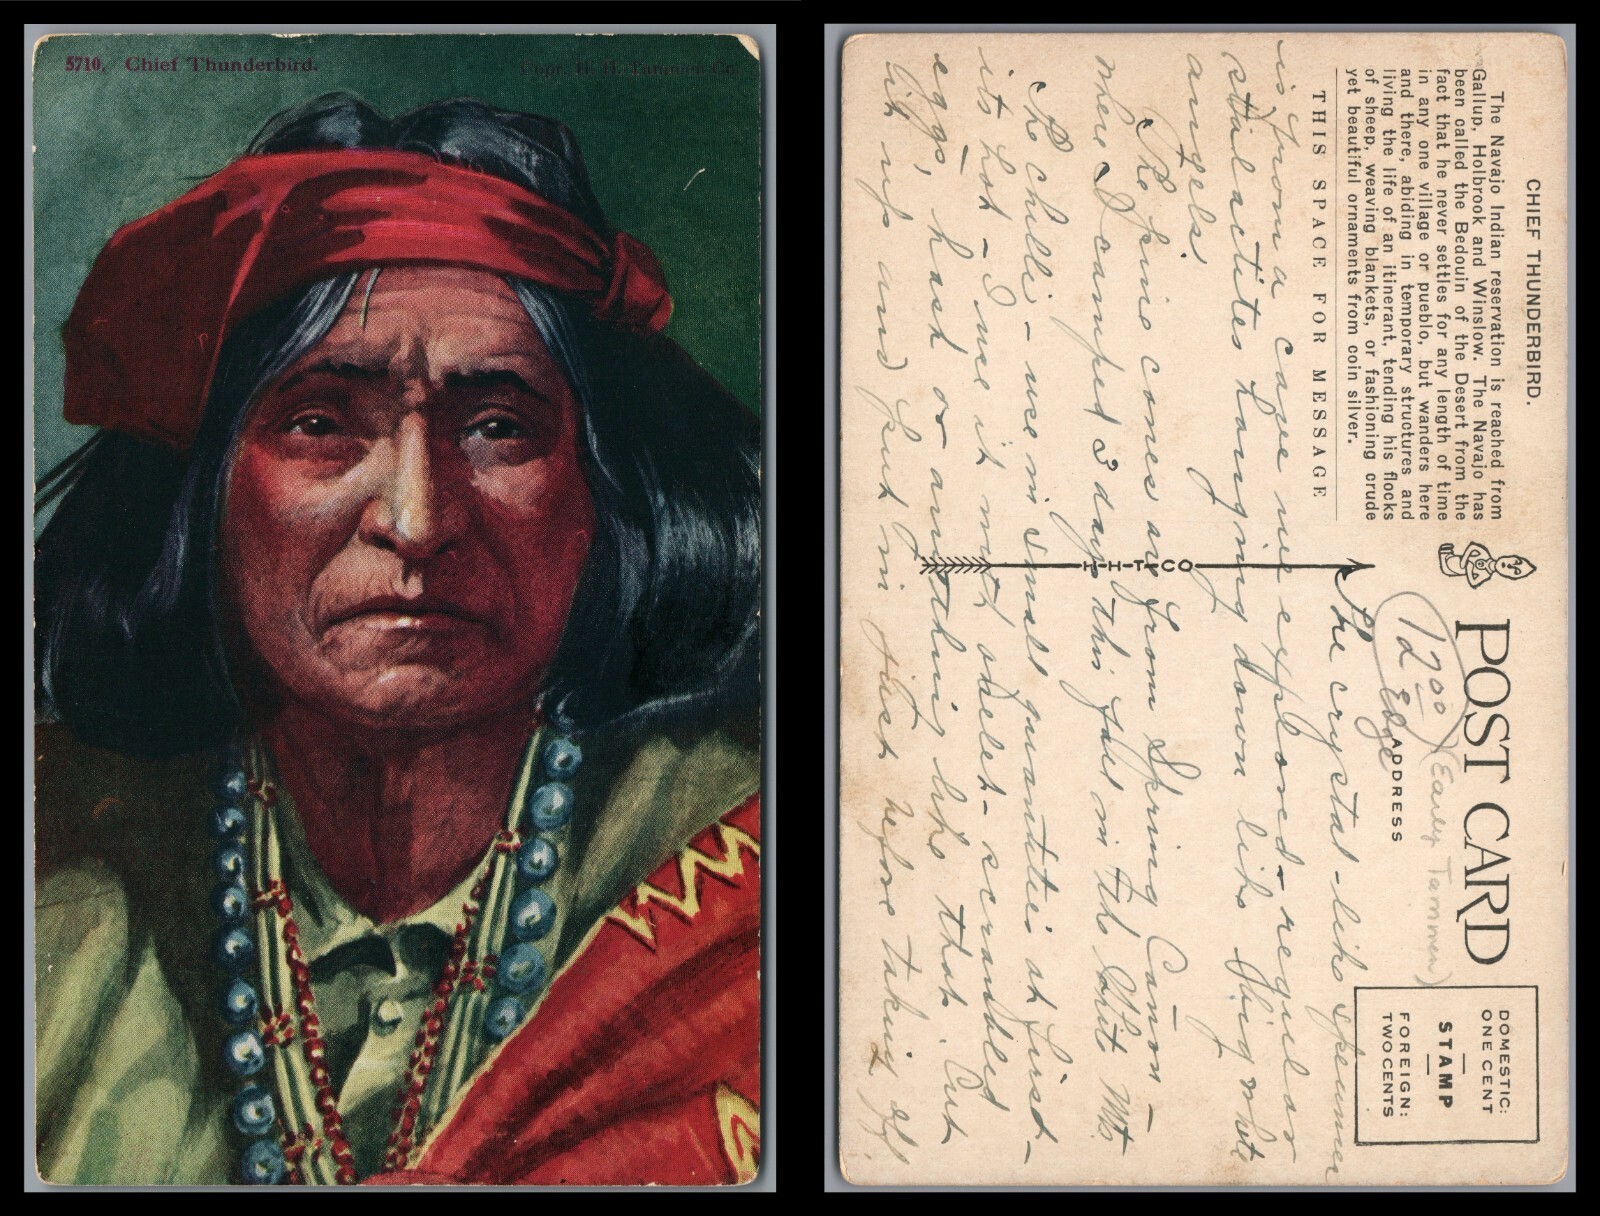 5710. Chief Thunderbird.
Copr. H. H. Tammen Co.
CHIEF THUNDERBIRD.
The Navajo Indian reservation is reached from
Gallup, Holbrook and Winslow. The Navajo has
been called the Bedouin of the Desert from the
fact that he never settles for any length of time
in any one village or pueblo, but wanders here
and there, abiding in temporary structures and
living the life of an itinerant, tending his flocks
of sheep, weaving blankets, or fashioning crude
yet beautiful ornaments from coin silver.
THIS SPACE FOR MESSAGE
H-H-T-CO
POST CARD
1200 (Early Tammen)
12 Edge
ADDRESS
DOMESTIC:
ONE CENT
STAMP
FOREIGN:
TWO CENTS
The crystal-like specimen
is from a cave we explored - regular
stalactites hanging down like big white
angels.
The pine cones are from Spring Cañon -
where I camped 3 days this fall in the White Mts.
The chilli - use in small quantities at first -
its hot - I use it with omelet - scrambled
eggs, hash or anything like that. Cut
it up and put in just before taking off.